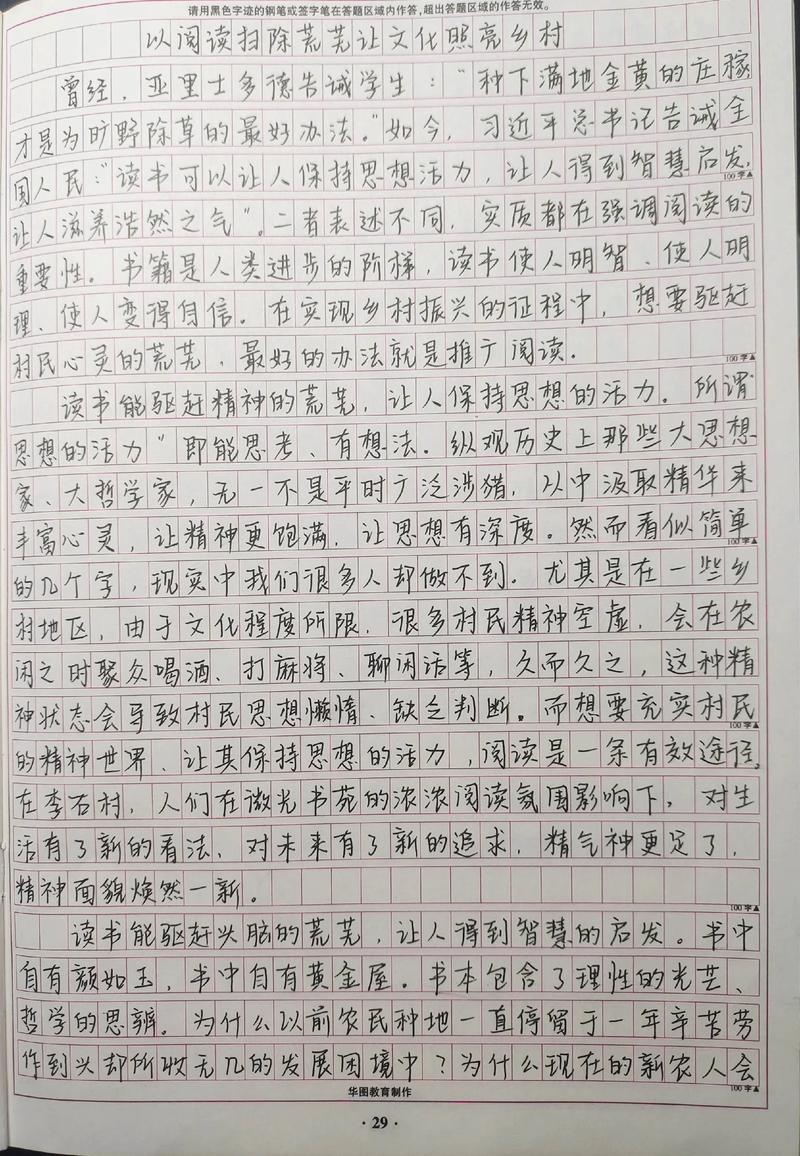 请用黑色字迹的钢笔或签字笔在答题区域内作答,超出答题区域的作答无效。
以阅读扫除荒芜让文化照亮乡村
曾经,亚里士多德告诫学生:“种下满地金黄的庄稼
才是为旷野除草的最好办法。”如今,习近平总书记告诫全
国人民:“读书可以让人保持思想活力,让人得到智慧启发,
100字▲
让人滋养浩然之气”。二者表述不同,实质都在强调阅读的
重要性。书籍是人类进步的阶梯,读书使人明智、使人明
理、使人变得自信。在实现乡村振兴的征程中,想要驱赶
村民心灵的荒芜,最好的办法就是推广阅读。
100字▲
读书能驱赶精神的荒芜,让人保持思想的活力。所谓
思想的活力”即能思考、有想法。纵观历史上那些大思想
家、大哲学家,无一不是平时广泛涉猎,从中汲取精华来
丰富心灵,让精神更饱满,让思想有深度。然而看似简单
100字▲
的几个字,现实中我们很多人却做不到。尤其是在一些乡
村地区,由于文化程度所限,很多村民精神空虚,会在农
闲之时聚众喝酒、打麻将、聊闲话等,久而久之,这种精
神状态会导致村民思想懒惰、缺乏判断。而想要充实村民
100字▲
的精神世界、让其保持思想的活力,阅读是一条有效途径。
在李石村,人们在微光书苑的浓浓阅读氛围影响下,对生
活有了新的看法、对未来有了新的追求,精气神更足了,
精神面貌焕然一新。
100字▲
读书能驱赶头脑的荒芜,让人得到智慧的启发。书中
自有颜如玉,书中自有黄金屋。书本包含了理性的光芒、
哲学的思辨。为什么以前农民种地一直停留于一年辛苦劳
作到头却所收无几的发展困境中?为什么现在的新农人会
100字▲
华图教育制作
· 29 ·